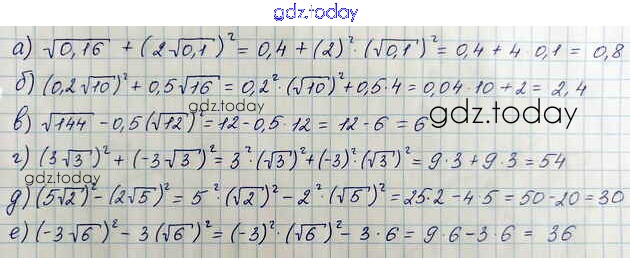 gdz.today
а) √0,16 + (2√0,1)² = 0,4 + (2)² · (√0,1)² = 0,4 + 4 · 0,1 = 0,8
б) (0,2√10)² + 0,5√16 = 0,2² · (√10)² + 0,5 · 4 = 0,04 · 10 + 2 = 2,4
gdz.today
gdz.today
в) √144 - 0,5(√12)² = 12 - 0,5 · 12 = 12 - 6 = 6
г) (3√3)² + (-3√3)² = 3² · (√3)² + (-3)² · (√3)² = 9 · 3 + 9 · 3 = 54
gdz.today
д) (5√2)² - (2√5)² = 5² · (√2)² - 2² · (√5)² = 25 · 2 - 4 · 5 = 50 - 20 = 30
е) (-3√6)² - 3(√6)² = (-3)² · (√6)² - 3 · 6 = 9 · 6 - 3 · 6 = 36